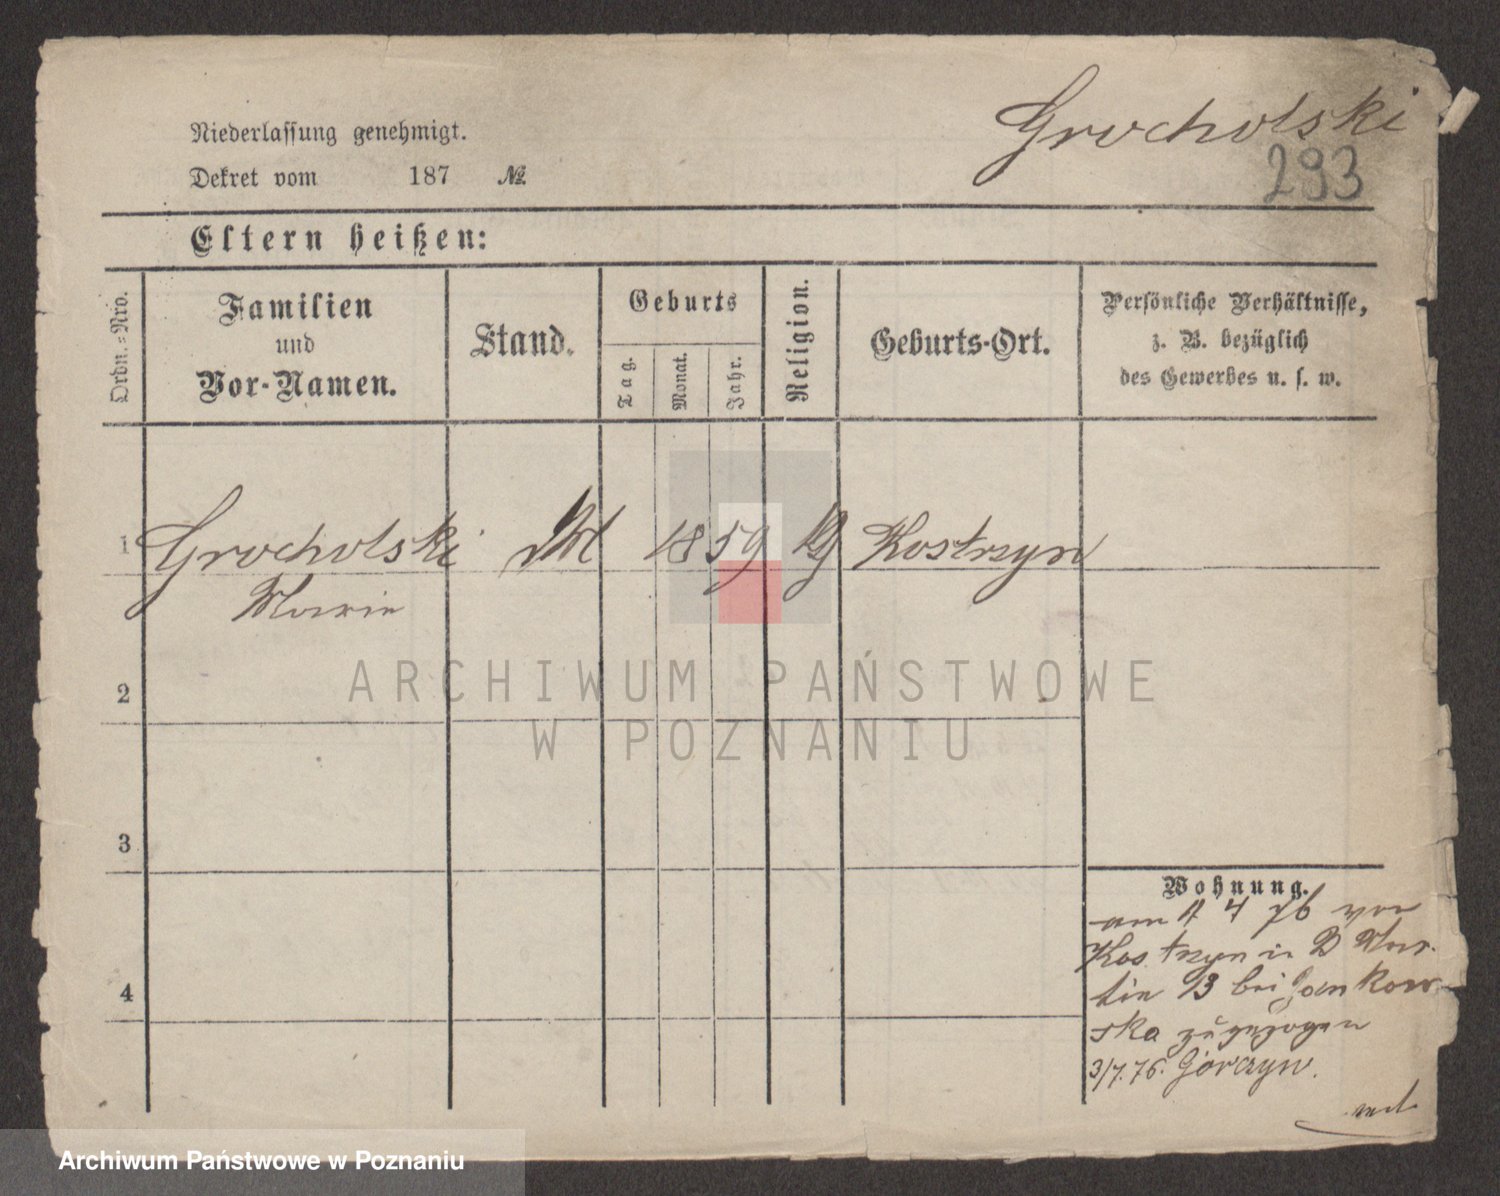 Grocholski
293
Niederlassung genehmigt.
Dekret vom 187 №
Eltern heißen:
Ordn.=Nro.
Familien
und
Vor-Namen.
Stand.
Geburts
Tag.
Monat.
Jahr.
Religion.
Geburts-Ort.
Persönliche Verhältnisse,
z. B. bezüglich
des Gewerbes u. s. w.
1 Grocholski 1859 Kostrzyn
Marie
2
3
4
Wohnung.
am 11 4 76 von
Kostrzyn in B Mar-
tin 13 bei Jankow-
ska zugezogen
3/7.76. Górczyn.
ARCHIWUM PAŃSTWOWE
W POZNANIU
Archiwum Państwowe w Poznaniu